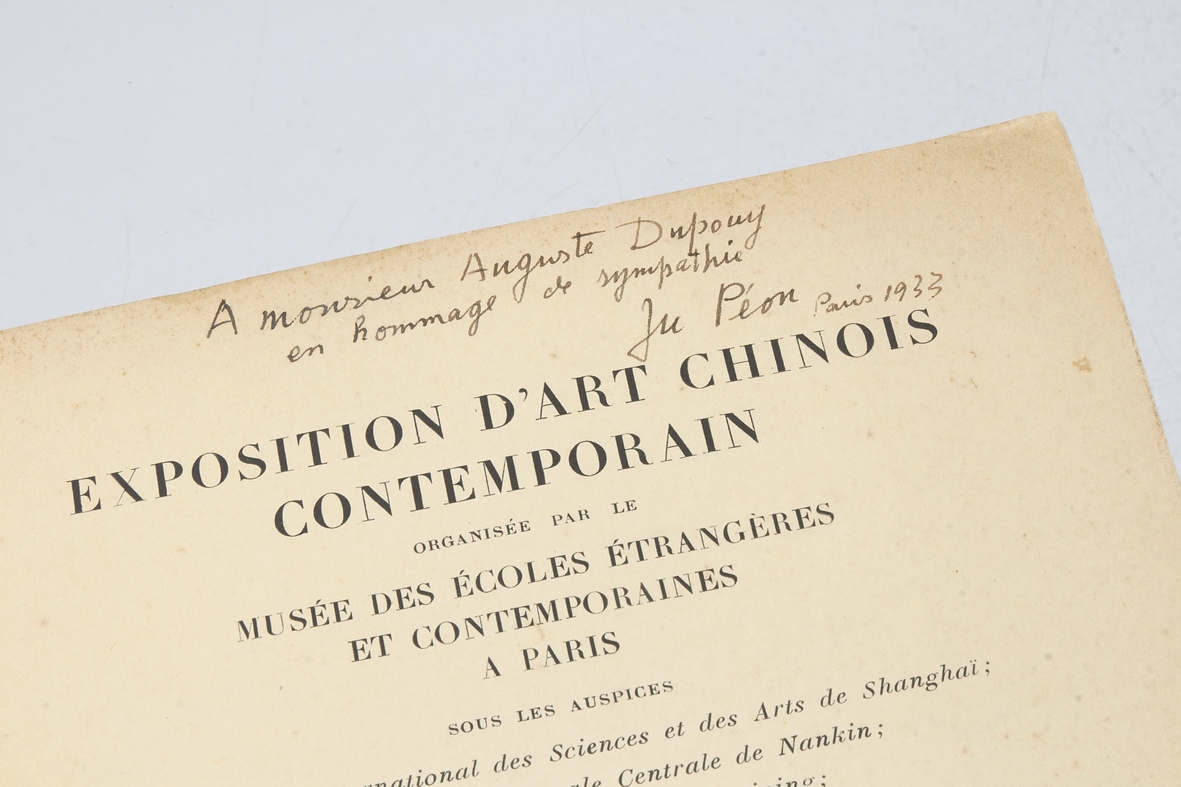 A monsieur Auguste Dupouy
en hommage de sympathie
Ju Péon Paris 1933
EXPOSITION D'ART CHINOIS
CONTEMPORAIN
ORGANISÉE PAR LE
MUSÉE DES ÉCOLES ÉTRANGÈRES
ET CONTEMPORAINES
A PARIS
SOUS LES AUSPICES
national des Sciences et des Arts de Shanghaï;
ale Centrale de Nankin;